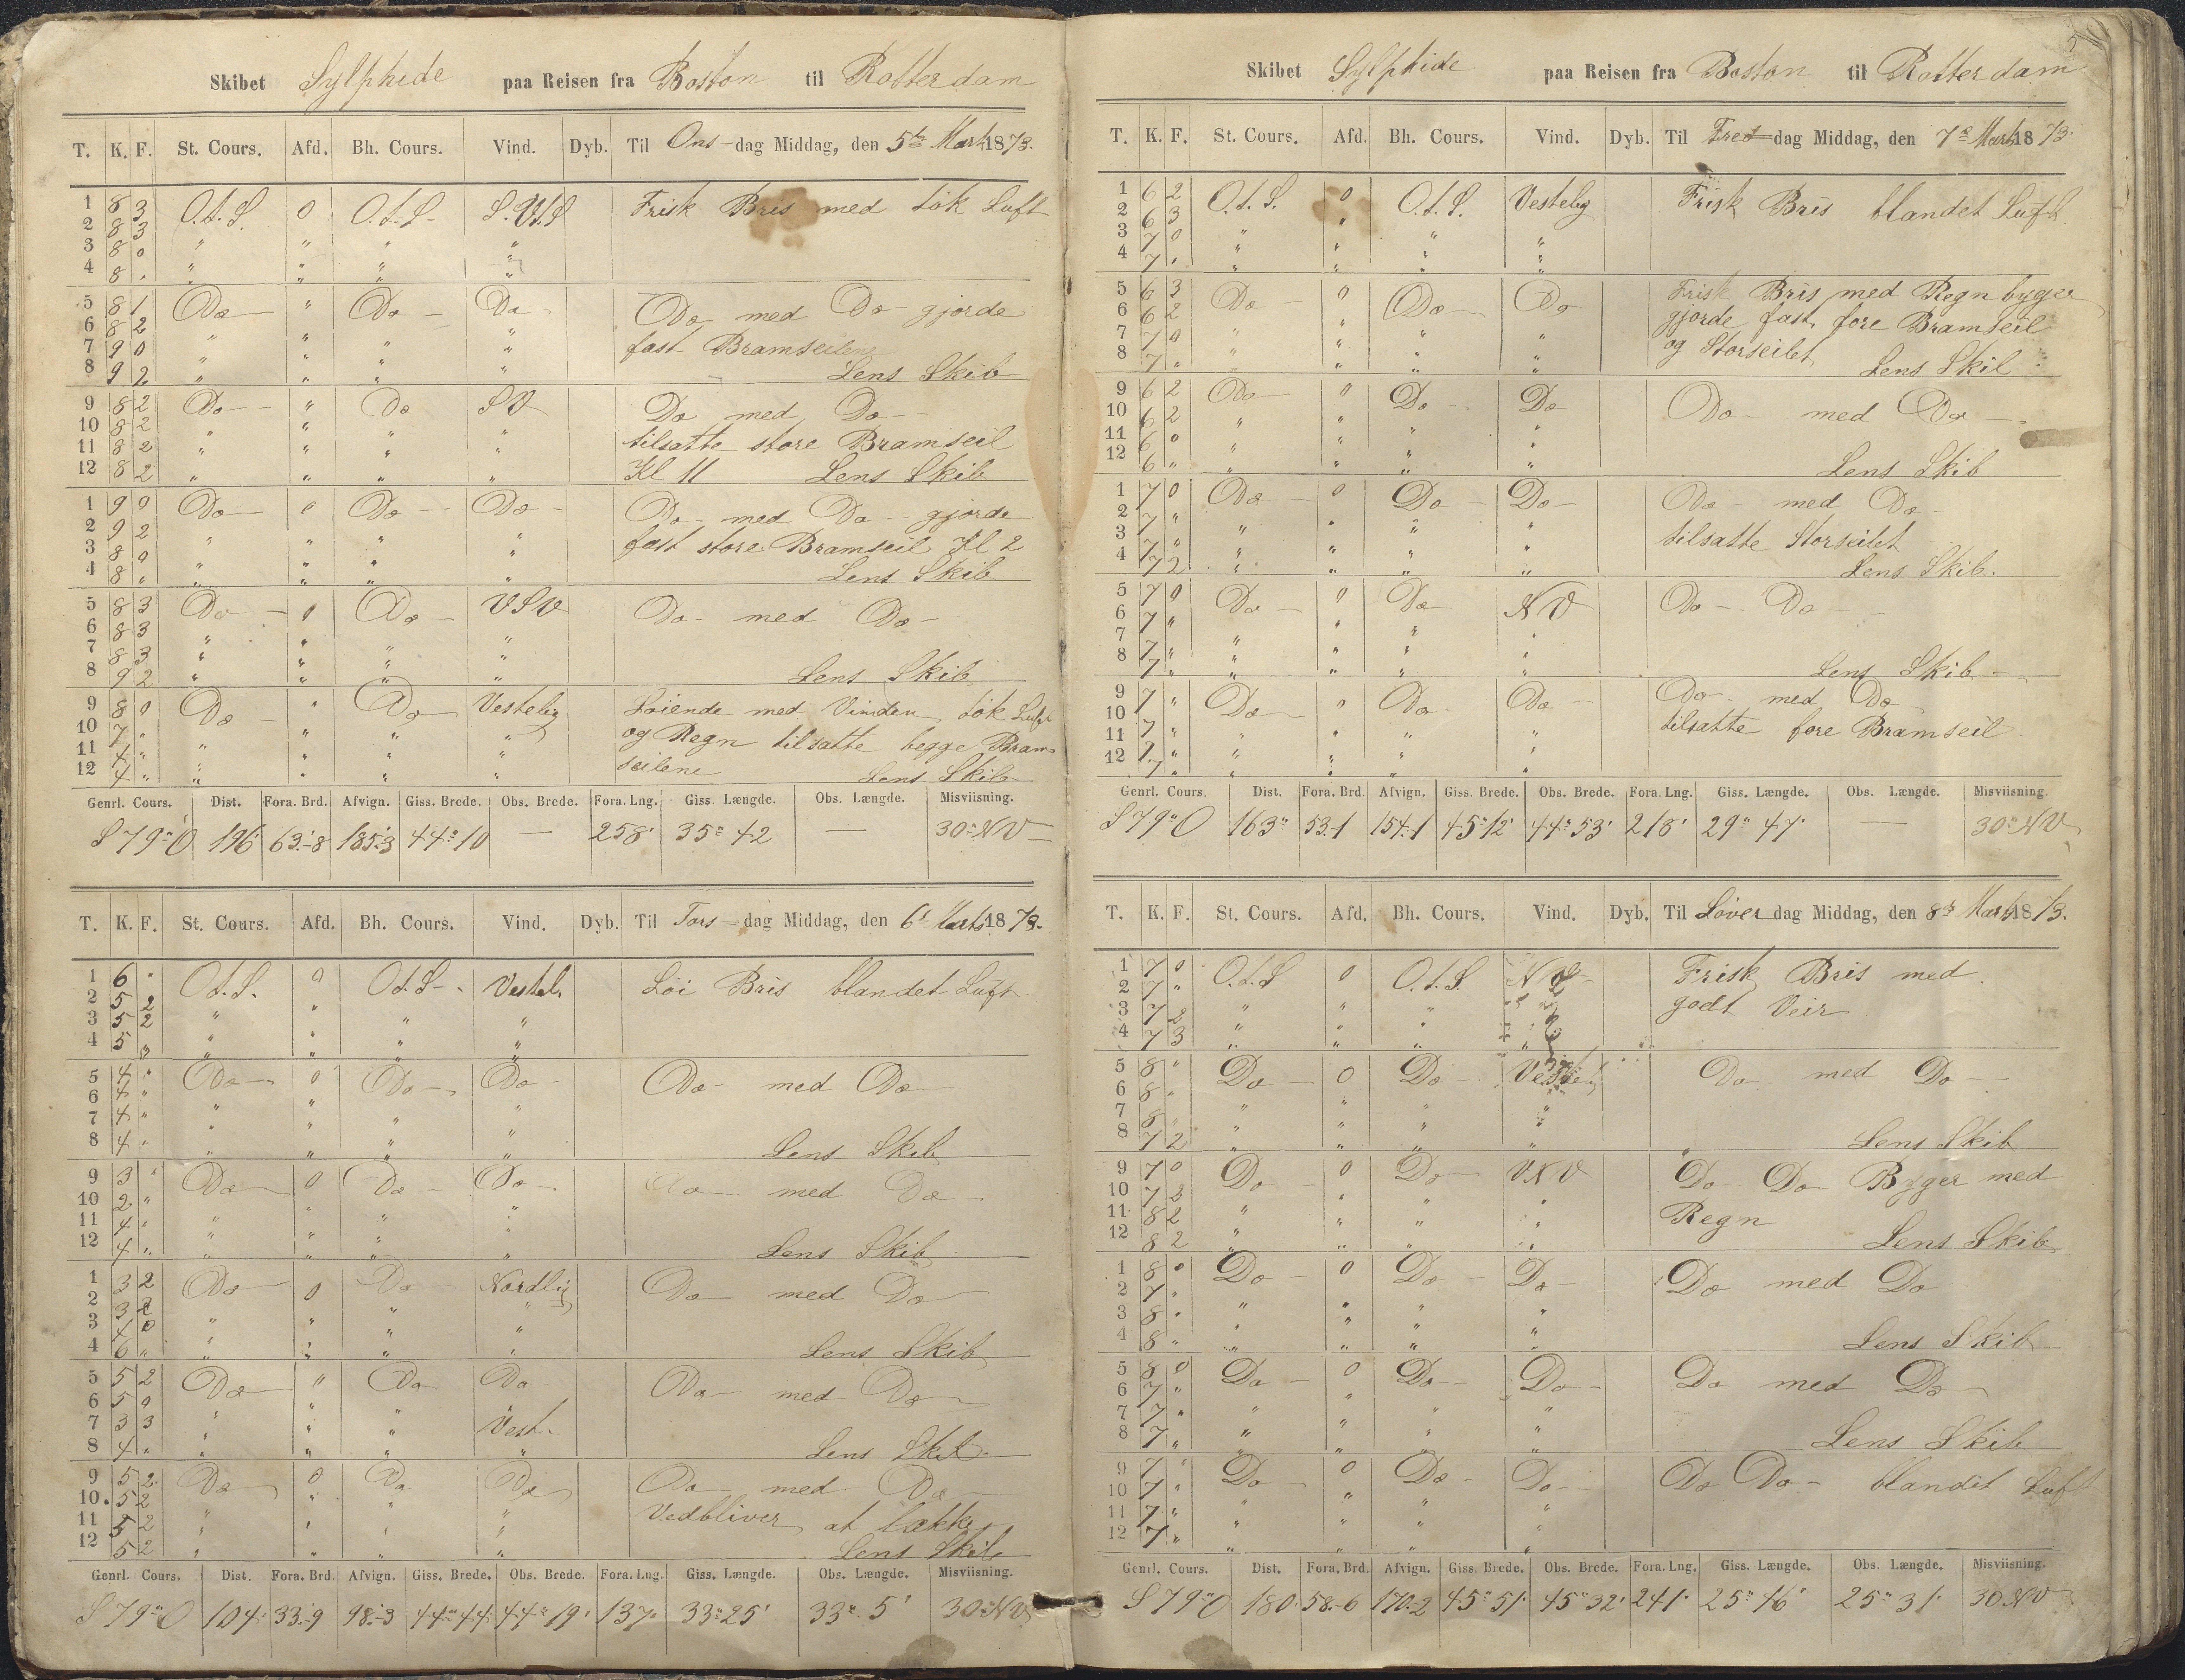 Skibet Sylphide paa Reisen fra Boston til Rotterdam
T. K. F. St. Cours. Afd. Bh. Cours. Vind. Dyb. Til Ons-dag Middag, den 5te Marts 1873.
1 8 3 O.t.S. 0 O.t.S. S.V.t.S Frisk Bris med tök Luft
2 8 3
3 8 0 " " " "
4 8 " " " " "
5 8 1 Do " Do Do Do med Do gjorde
6 8 2 fast Bramseilene
7 9 0 " " " "
8 9 2 " " " " Lens Skib
9 8 2 Do " Do SV Do med Do
10 8 2 " " " " tilsatte store Bramseil
11 8 2 " " " "
12 8 2 " " " " Kl 11 Lens Skib
1 9 0 Do 0 Do Do Do med Do gjorde
2 9 2 " " " " fast store Bramseil Kl 2
3 8 0 " " " "
4 8 " " " " " Lens Skib
5 8 3 Do 0 Do VSV Do med Do
6 8 3
7 8 3 " " " "
8 9 2 " " " " Lens Skib
9 8 0 Do " Do Vestelig Löiende med Vinden tök Luft
10 7 " " " " " og Regn tilsatte begge Bram-
11 4 " " " " " seilene
12 4 " " " " " Lens Skib
Genrl. Cours. Dist. Fora. Brd. Afvign. Giss. Brede. Obs. Brede. Fora. Lng. Giss. Længde. Obs. Længde. Misviisning.
S 79° O 196' 63.-8 185.-3 44° 10 — 258' 35° 42 — 30° NV
T. K. F. St. Cours. Afd. Bh. Cours. Vind. Dyb. Til Tors-dag Middag, den 6' Marts 1873.
1 6 " O.t.S. 0 O.t.S. Vestel. Löi Bris blandet Luft
2 5 2
3 5 2 " " " "
4 5 " " " " "
5 4 " Do 0 Do Do Do med Do
6 4 "
7 4 " " " " "
8 4 " " " " " Lens Skib
9 3 " Do 0 Do Do Do med Do
10 2 "
11 4 " " " " "
12 4 " " " " " Lens Skib
1 3 2 Do 0 Do Nordlig Do med Do
2 3 2
3 4 0 " " " "
4 6 " " " " " Lens Skib
5 5 2 Do " Do Do Do med Do
6 5 0
7 3 3 " " " Vest.
8 4 " " " " " Lens Skib
9 5 2 Do 0 Do Do Do med Do
10 5 2
11 5 2 " " " " Vedbliver at lække
12 5 2 " " " " Lens Skib
Genrl. Cours. Dist. Fora. Brd. Afvign. Giss. Brede. Obs. Brede. Fora. Lng. Giss. Længde. Obs. Længde. Misviisning.
S 79° O 104' 33.-9 98.-3 44° 44' 44° 19' 137' 33° 25' 33° 5' 30° NV
5
Skibet Sylphide paa Reisen fra Boston til Rotterdam
T. K. F. St. Cours. Afd. Bh. Cours. Vind. Dyb. Til Fre-dag Middag, den 7de Marts 1873.
1 6 2 O.t.S. 0 O.t.S. Vestelig Frisk Bris blandet Luft
2 6 3
3 7 0 " " " "
4 7 " " " " "
5 6 3 Do 0 Do Do Frisk Bris med Regnbyger
6 6 2 gjorde fast fore Bramseil
7 7 0 " " " " og Storseilet
8 7 " " " " " Lens Skib
9 6 2 Do 0 Do Do Do med Do
10 6 2
11 6 0 " " " "
12 6 " " " " " Lens Skib
1 7 0 Do 0 Do Do Do med Do
2 7 "
3 7 " " " " " tilsatte Storseilet
4 7 2 " " " " Lens Skib.
5 7 0 Do 0 Do NV Do Do
6 7 "
7 7 " " " " "
8 7 " " " " " Lens Skib
9 7 " Do 0 Do Do Do med Do
10 7 " tilsatte fore Bramseil
11 7 " " " " "
12 7 " " " " "
Genrl. Cours. Dist. Fora. Brd. Afvign. Giss. Brede. Obs. Brede. Fora. Lng. Giss. Længde. Obs. Længde. Misviisning.
S 79° O 163" 53.-1 154.-1 45° 12' 44° 53' 218' 29° 47' — 30° NV
T. K. F. St. Cours. Afd. Bh. Cours. Vind. Dyb. Til Löver dag Middag, den 8de Marts 1873.
1 7 0 O.t.S 0 O.t.S. NV Frisk Bris med
2 7 " godt Veir
3 7 2 " " "
4 7 3 " " "
5 8 " Do 0 Do Vestel Do med Do
6 8 "
7 8 " " " " "
8 7 2 " " " " Lens Skib
9 7 0 Do 0 Do VNV Do Do Byger med
10 7 3 Regn
11 8 2 " " " "
12 8 2 " " " " Lens Skib
1 8 " Do 0 Do Do Do med Do
2 7 "
3 8 " " " " "
4 8 " " " " " Lens Skib
5 8 0 Do 0 Do Do Do med Do
6 7 "
7 7 " " " " "
8 7 " " " " " Lens Skib
9 7 " Do 0 Do Do Do Do blandet Luft
10 7 "
11 7 " " " " "
12 7 " " " " "
Genrl. Cours. Dist. Fora. Brd. Afvign. Giss. Brede. Obs. Brede. Fora. Lng. Giss. Længde. Obs. Længde. Misviisning.
S 79° O 180' 58.-6 170.-2 45° 51' 45° 32' 241' 25° 46' 25° 31' 30 NV